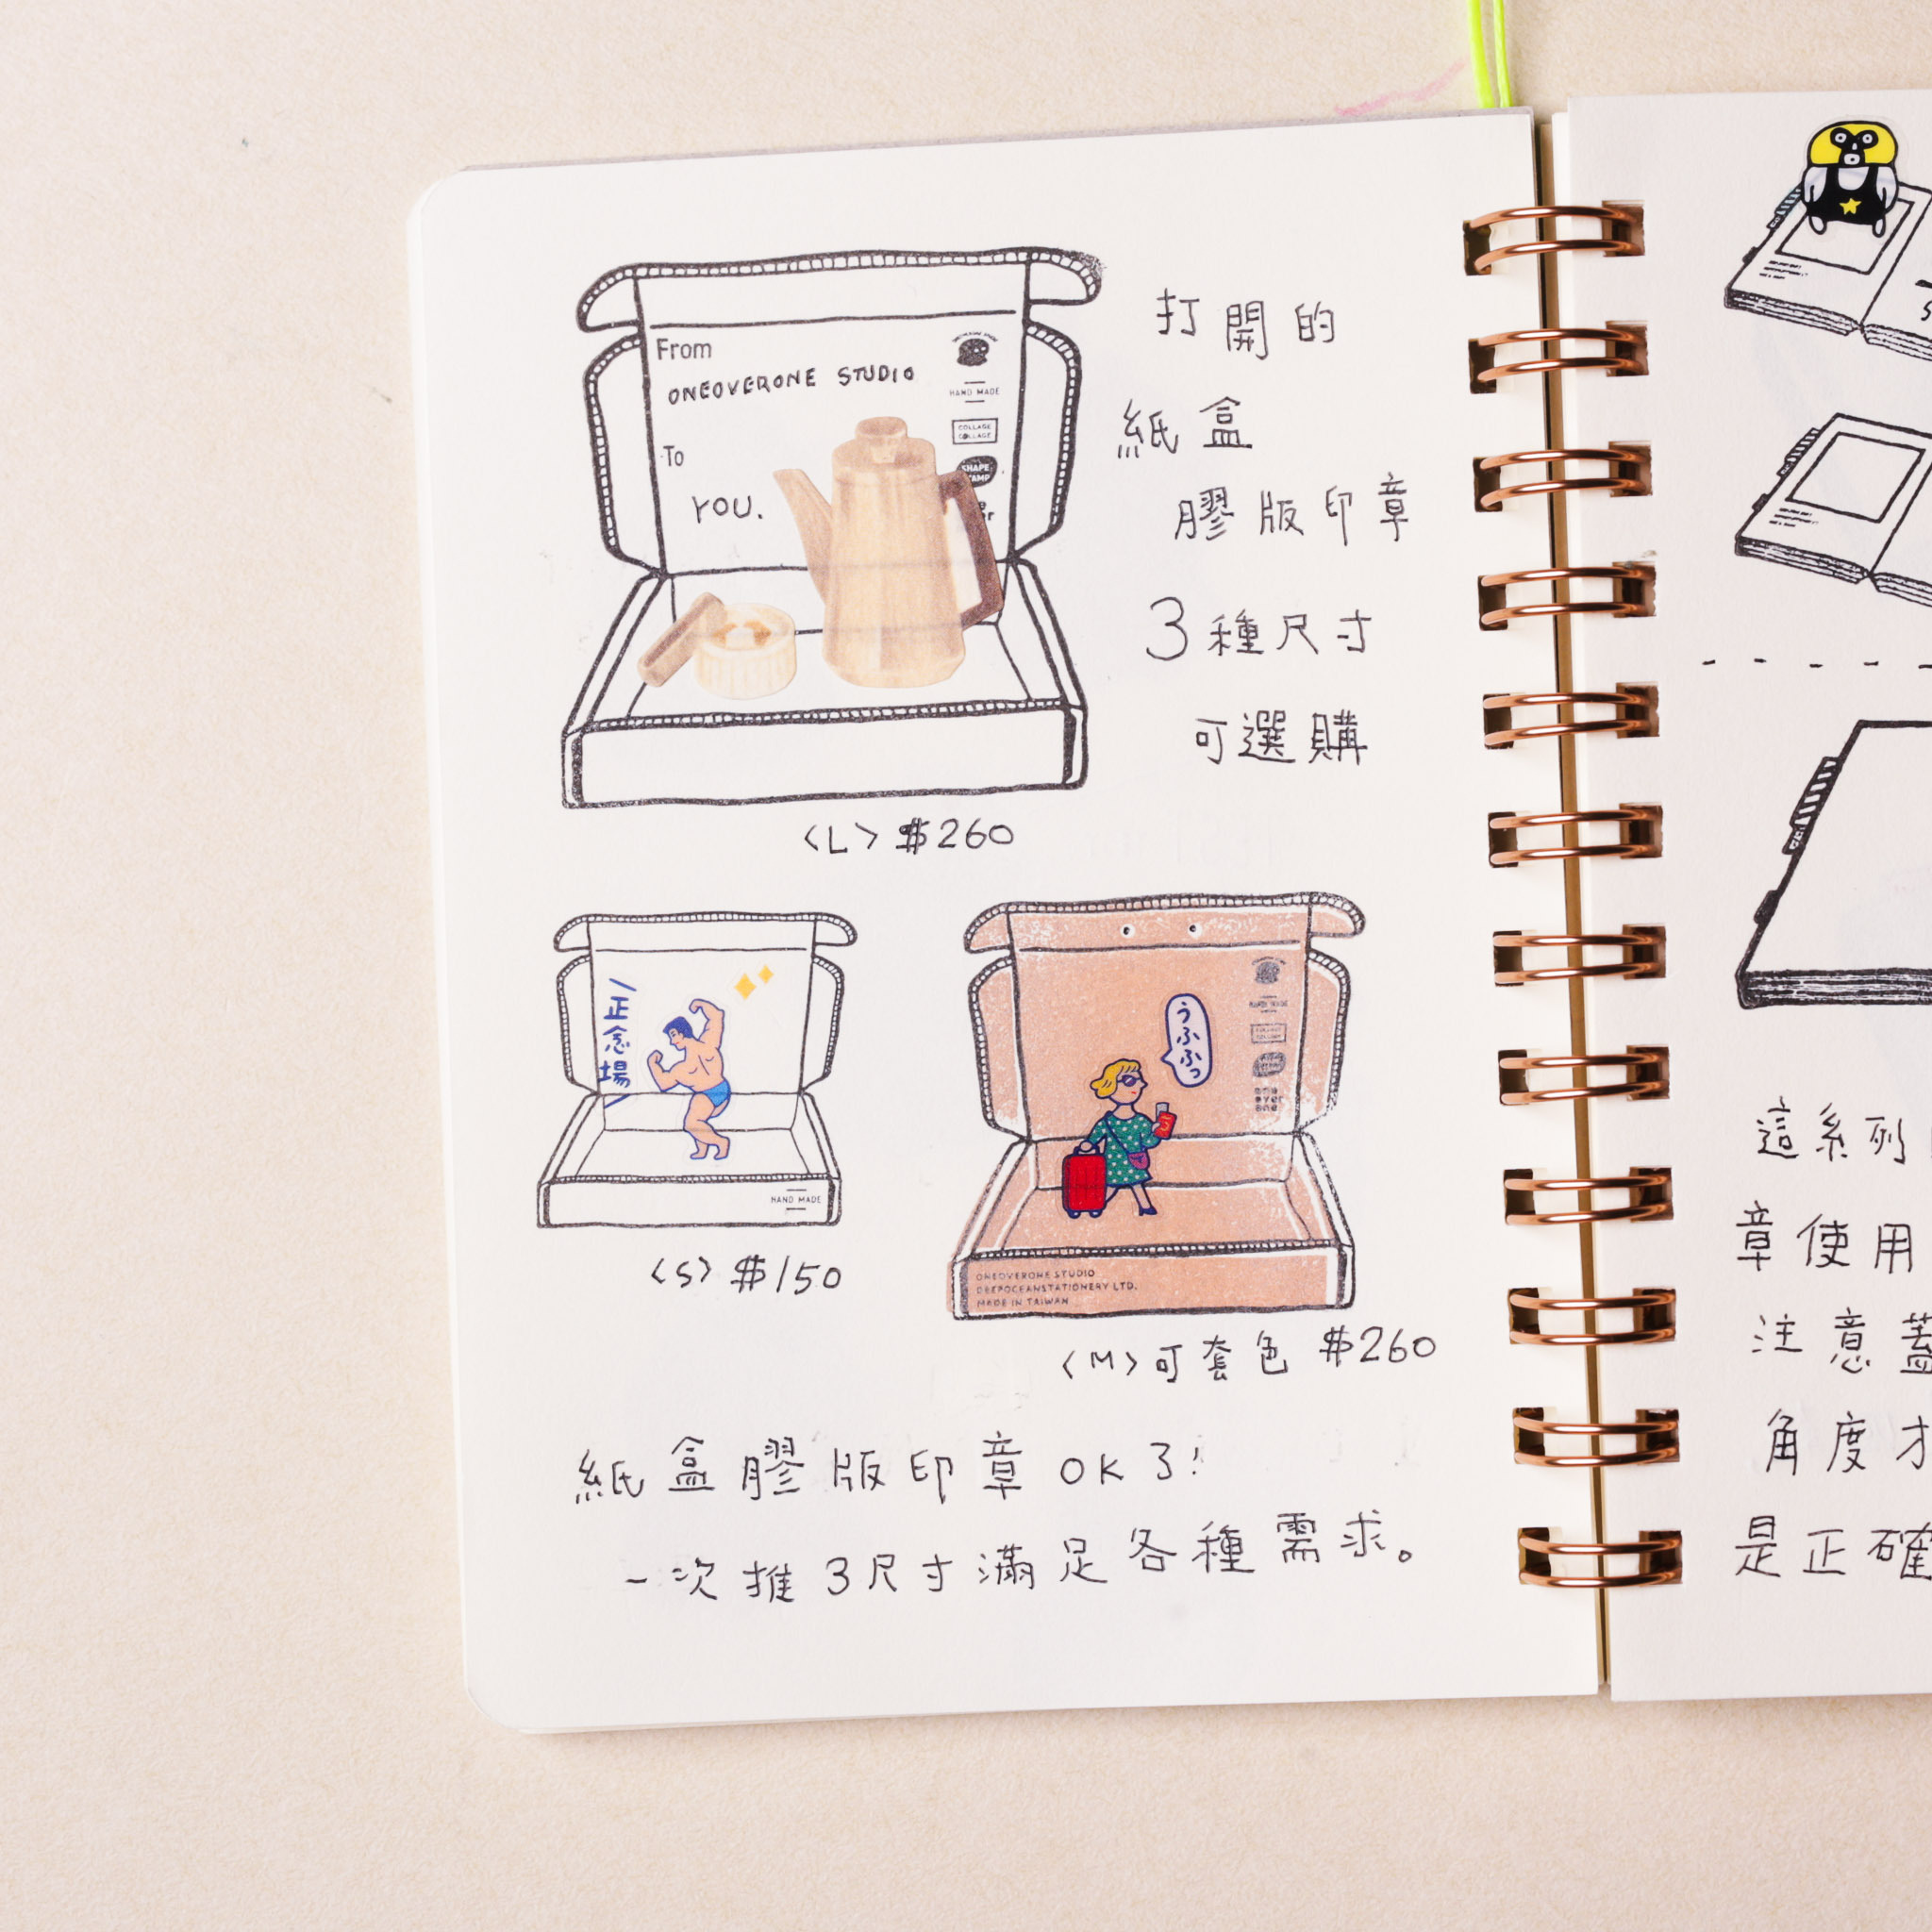 From
ONEOVERONE STUDIO
To
YOU.
HAND MADE
COLLAGE
COLLAGE
SHAPE
打開的
紙盒
膠版印章
3種尺寸
可選購
〈L〉 $260
正念場
HAND MADE
〈S〉 $150
うふふっ
HAND MADE
one
over
one
ONEOVERONE STUDIO
DEEPOCEANSTATIONERY LTD.
MADE IN TAIWAN
〈M〉可套色 $260
紙盒膠版印章OK了!
一次推3尺寸滿足各種需求。
這系列
章使用
注意蓋
角度才
是正確